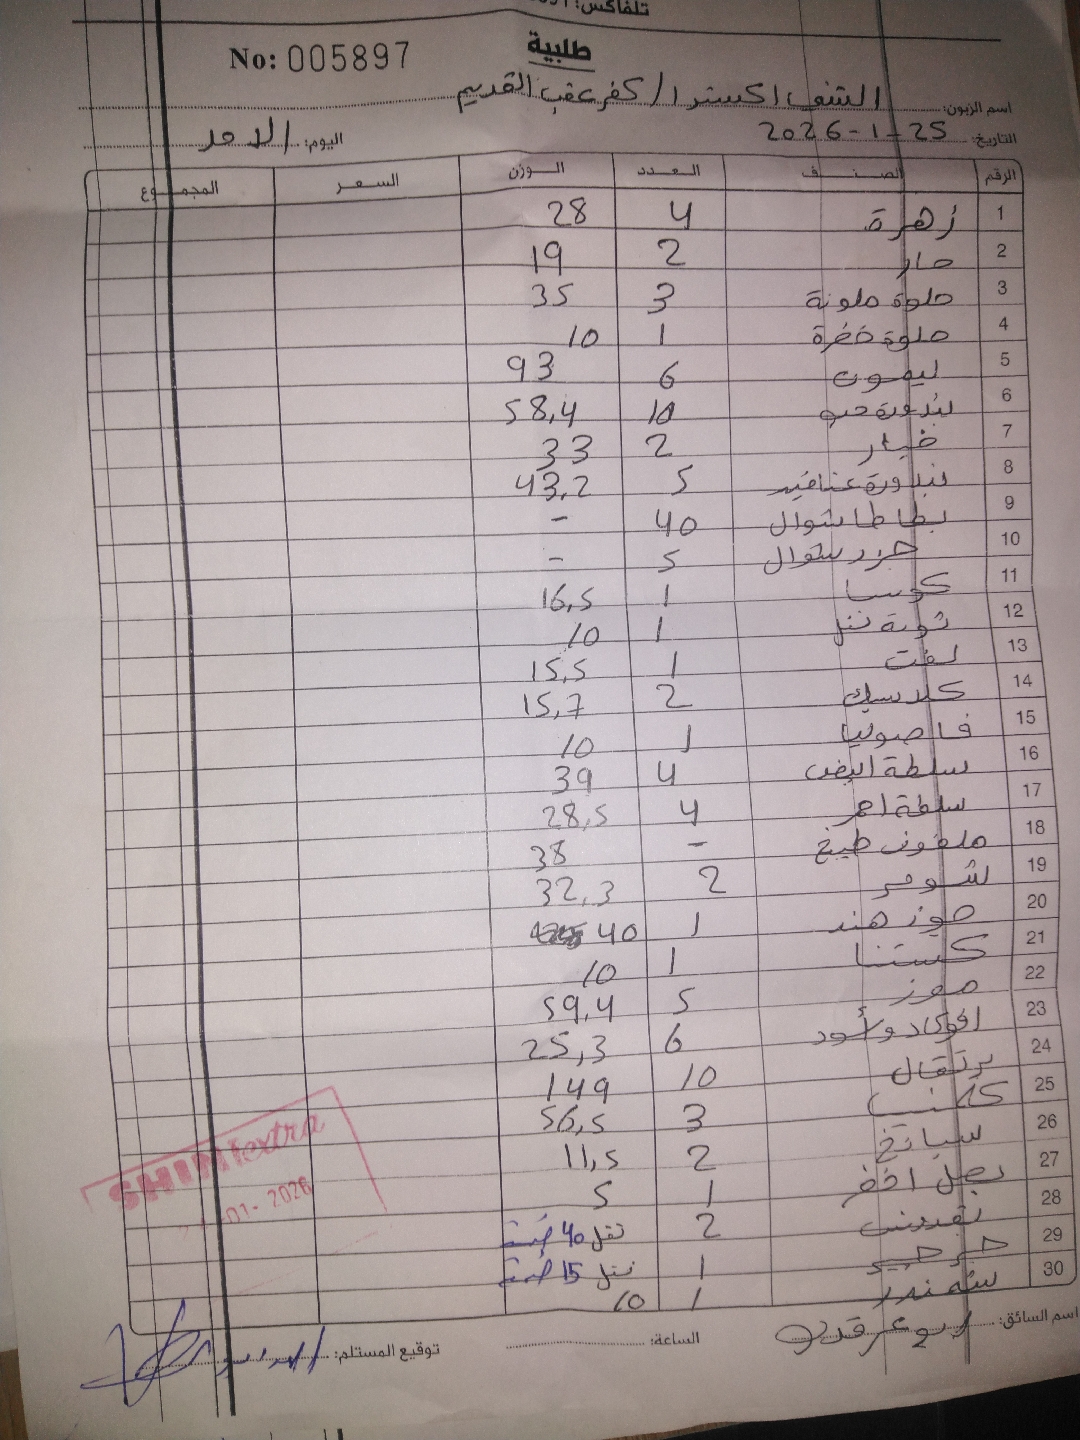 تلفاكس:
طلبية
No: 005897
اسم الزبون: الشني اكسترا / كفر عقب القديم
التاريخ: 2026-1-25 اليوم: الاحد
الرقم الصنف العدد الوزن السعر المجموع
1 زهرة 4 28
2 حار 2 19
3 حلوة ملونة 3 35
4 حلوة خضرة 1 10
5 ليمون 6 93
6 بندورة حب 10 58,4
7 خيار 2 33
8 بندورة عناقيد 5 43,2
9 بطاطا شوال 40 -
10 جزر شوال 5 -
11 كوسا 1 16,5
12 ثومة نتل 1 10
13 لفت 1 15,5
14 كلاسيك 2 15,7
15 فاصوليا 1 10
16 سلطة ابيض 4 39
17 سلطة احمر 4 28,5
18 ملفوف طبيخ - 38
19 شومر 2 32,3
20 جوز هند 1 40
21 كستنا 1 10
22 موز 5 59,4
23 افوكادو أسود 6 25,3
24 برتقال 10 149
25 كلمنتينا 3 56,5
26 سبانخ 2 11,5
27 بصل اخضر 1 5
28 بقدونس 2 نتل 40 ضمة
29 جرجير 1 نتل 15 ضمة
30 شمندر 1 10
SHINI extra
-01- 2026
اسم السائق: ابو عمر الساعة: توقيع المستلم: